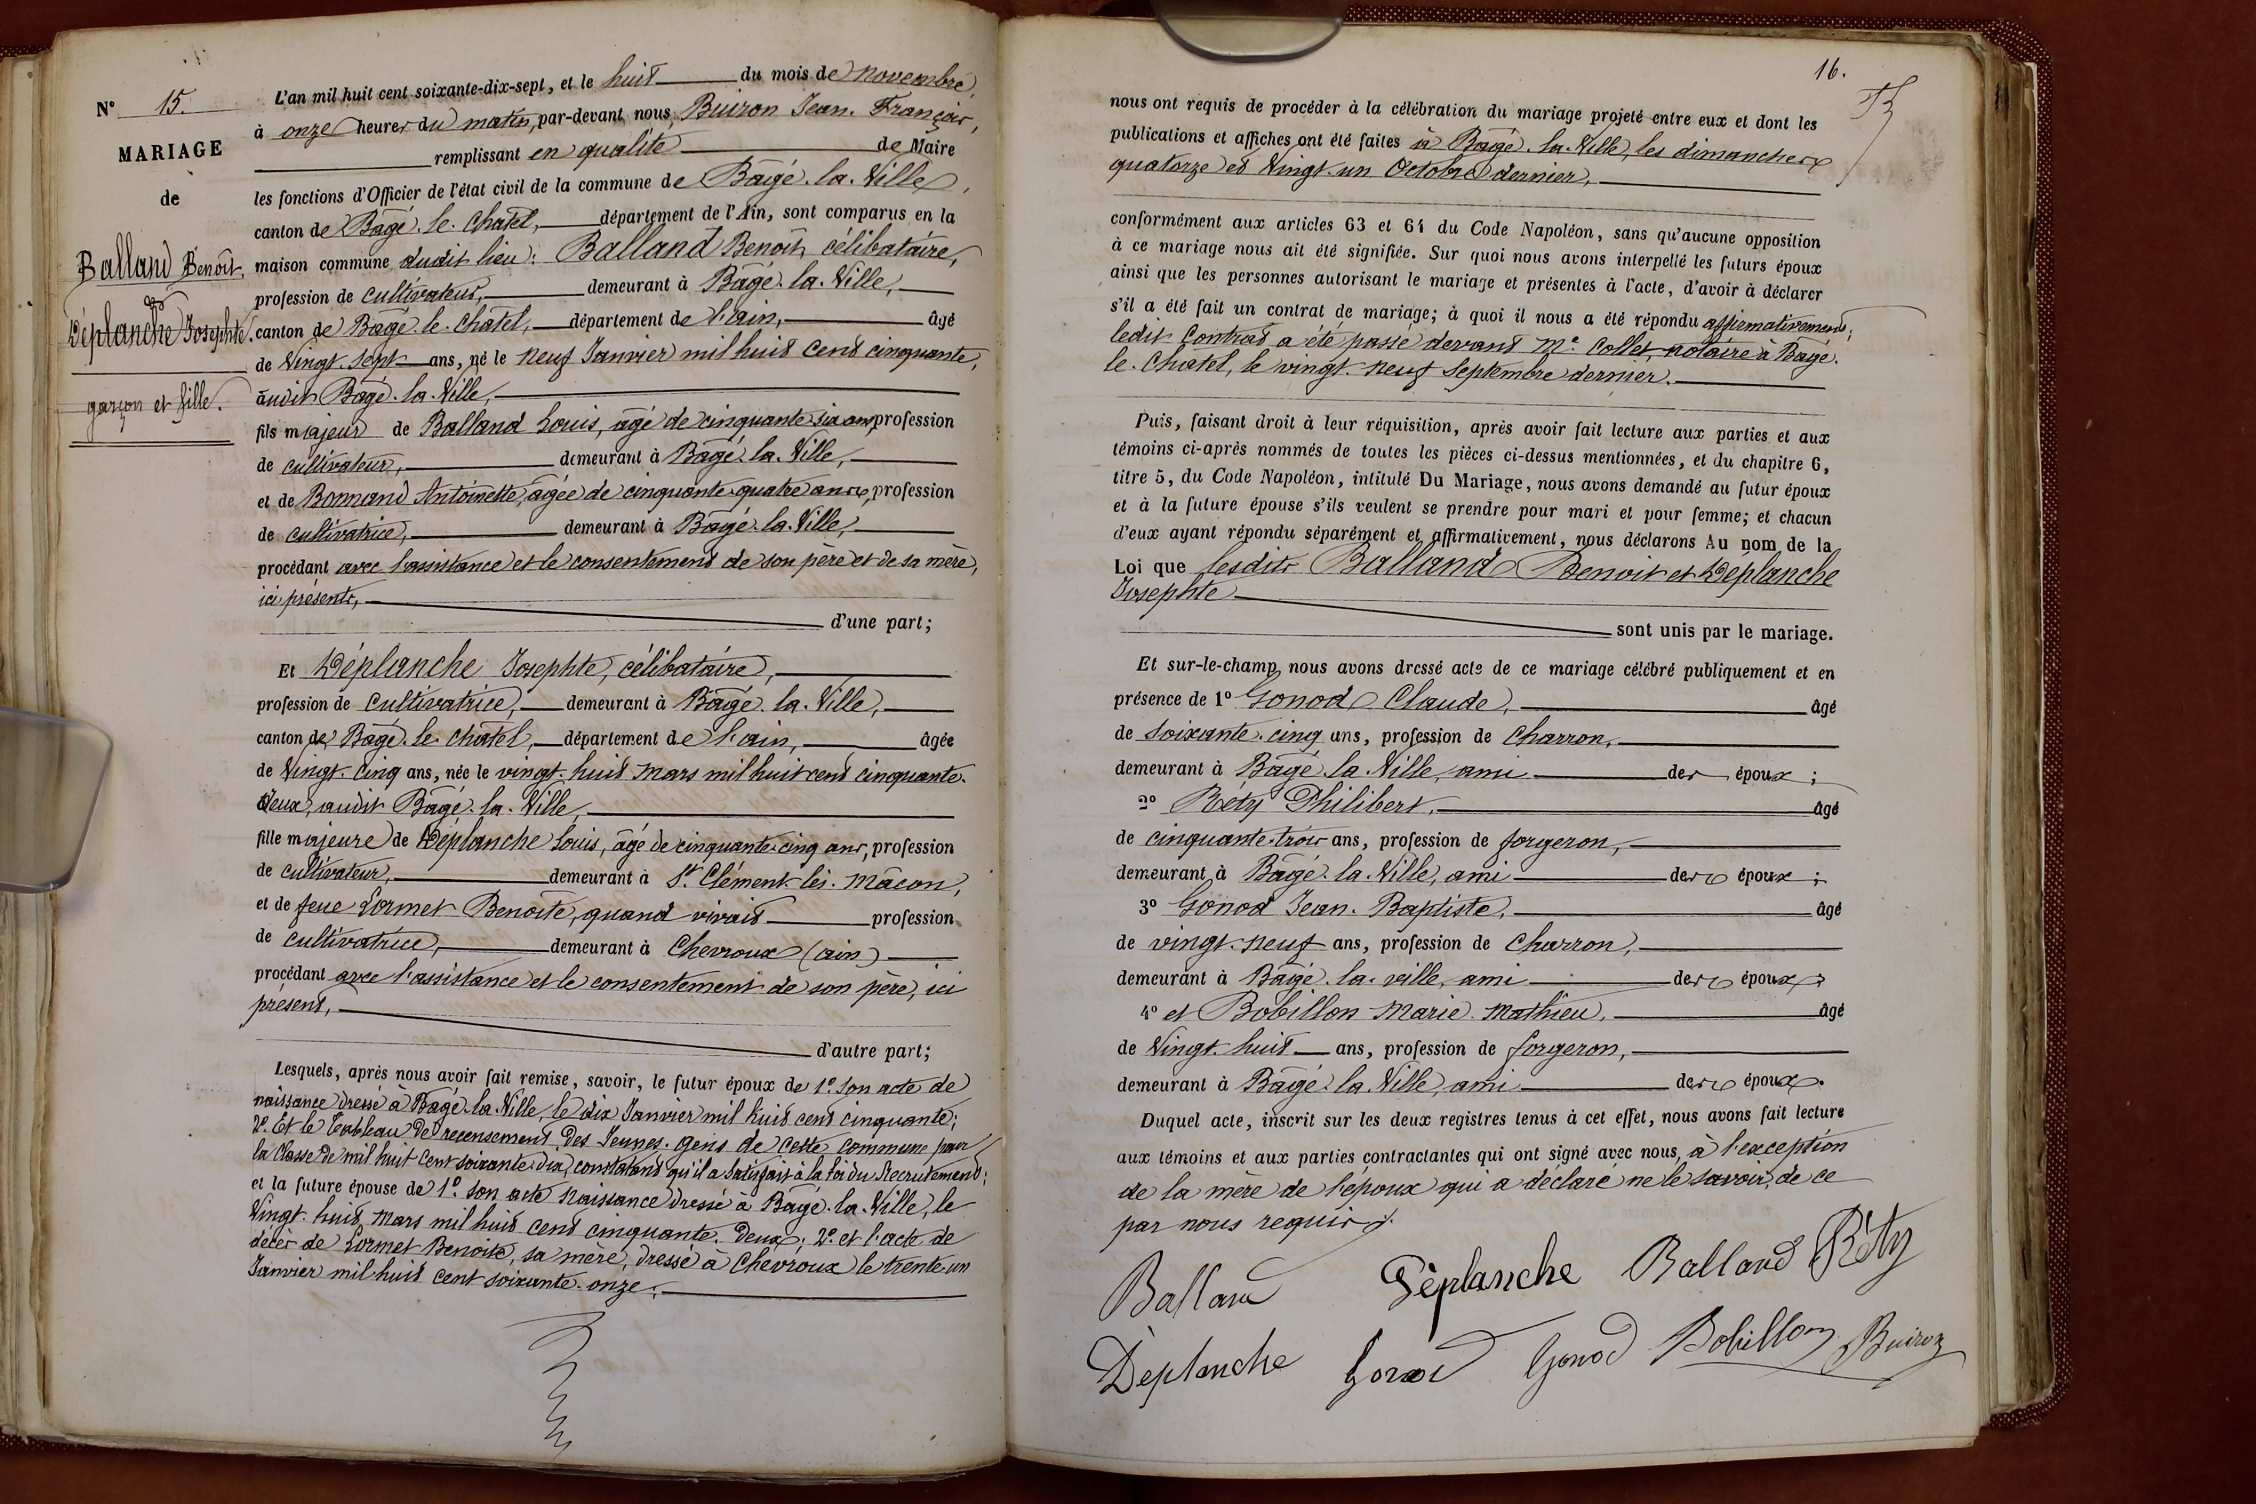 N° 15.
MARIAGE
de
Balland Benoît,
et
Déplanche Josephte.
garçon et fille.
L'an mil huit cent soixante-dix-sept, et le huit du mois de novembre,
à onze heures du matin, par-devant nous Buiron Jean-François,
remplissant en qualité de Maire
les fonctions d'Officier de l'état civil de la commune de Bâgé-la-Ville,
canton de Bâgé-le-Châtel, département de l'Ain, sont comparus en la
maison commune dudit lieu: Balland Benoît, célibataire,
profession de cultivateur, demeurant à Bâgé-la-Ville,
canton de Bâgé-le-Châtel, département de l'ain, âgé
de Vingt-sept ans, né le neuf Janvier mil huit cent cinquante,
audit Bâgé-la-Ville,
fils majeur de Balland Louis, âgé de cinquante-six ans, profession
de cultivateur, demeurant à Bâgé-la-Ville,
et de Bonnand Antoinette, âgée de cinquante-quatre ans, profession
de cultivatrice, demeurant à Bâgé-la-Ville,
procédant avec l'assistance et le consentement de son père et de sa mère,
ici présents,
d'une part;
Et Déplanche Josephte, célibataire,
profession de cultivatrice, demeurant à Bâgé-la-Ville,
canton de Bâgé-le-Châtel, département de l'ain, âgée
de Vingt-cinq ans, née le vingt-huit Mars mil huit cent cinquante-
deux, audit Bâgé-la-Ville,
fille majeure de Déplanche Louis, âgé de cinquante-cinq ans, profession
de cultivateur, demeurant à St Clément-lès-Mâcon,
et de feue Lormet Benoîte, quand vivait profession
de cultivatrice, demeurant à Chevroux (ain)
procédant avec l'assistance et le consentement de son père, ici
présent,
d'autre part;
Lesquels, après nous avoir fait remise, savoir, le futur époux de 1°. son acte de
naissance dressé à Bâgé-la-Ville, le dix Janvier mil huit cent cinquante;
2°. Et le Tableau de recensement des Jeunes-gens de cette commune pour
la Classe de mil huit cent soixante-dix, constatant qu'il a satisfait à la loi du Recrutement;
et la future épouse de 1°. son acte naissance dressé à Bâgé-la-Ville, le
Vingt-huit Mars mil huit cent cinquante-deux; 2°. et l'acte de
décès de Lormet Benoîte, sa mère, dressé à Chevroux le trente-un
Janvier mil-huit cent soixante-onze;
16.
nous ont requis de procéder à la célébration du mariage projeté entre eux et dont les
publications et affiches ont été faites à Bâgé-la-Ville, les dimanches
quatorze et vingt-un Octobre dernier,
conformément aux articles 63 et 64 du Code Napoléon, sans qu'aucune opposition
à ce mariage nous ait été signifiée. Sur quoi nous avons interpellé les futurs époux
ainsi que les personnes autorisant le mariage et présentes à l'acte, d'avoir à déclarer
s'il a été fait un contrat de mariage; à quoi il nous a été répondu affirmativement;
ledit contrat a été passé devant Me. Collet, notaire à Bâgé-
le-Châtel, le vingt-neuf septembre dernier.
Puis, faisant droit à leur réquisition, après avoir fait lecture aux parties et aux
témoins ci-après nommés de toutes les pièces ci-dessus mentionnées, et du chapitre 6,
titre 5, du Code Napoléon, intitulé Du Mariage, nous avons demandé au futur époux
et à la future épouse s'ils veulent se prendre pour mari et pour femme; et chacun
d'eux ayant répondu séparément et affirmativement, nous déclarons Au nom de la
Loi que lesdits Balland Benoît et Déplanche
Josephte
sont unis par le mariage.
Et sur-le-champ, nous avons dressé acte de ce mariage célébré publiquement et en
présence de 1° Gonod Claude, âgé
de soixante-cinq ans, profession de Charron,
demeurant à Bâgé-la-Ville, ami des époux;
2° Réty Philibert, âgé
de cinquante-trois ans, profession de forgeron,
demeurant à Bâgé-la-Ville, ami des époux;
3° Gonod Jean-Baptiste, âgé
de vingt-neuf ans, profession de Charron,
demeurant à Bâgé-la-ville, ami des époux
4° et Bobillon Marie-Mathieu, âgé
de Vingt-huit ans, profession de forgeron,
demeurant à Bâgé-la-Ville, ami des époux.
Duquel acte, inscrit sur les deux registres tenus à cet effet, nous avons fait lecture
aux témoins et aux parties contractantes qui ont signé avec nous, à l'exception
de la mère de l'époux qui a déclaré ne le savoir, de ce
par nous requis.
Balland Déplanche Balland Réty
Déplanche Gonod Gonod Bobillon Buiron